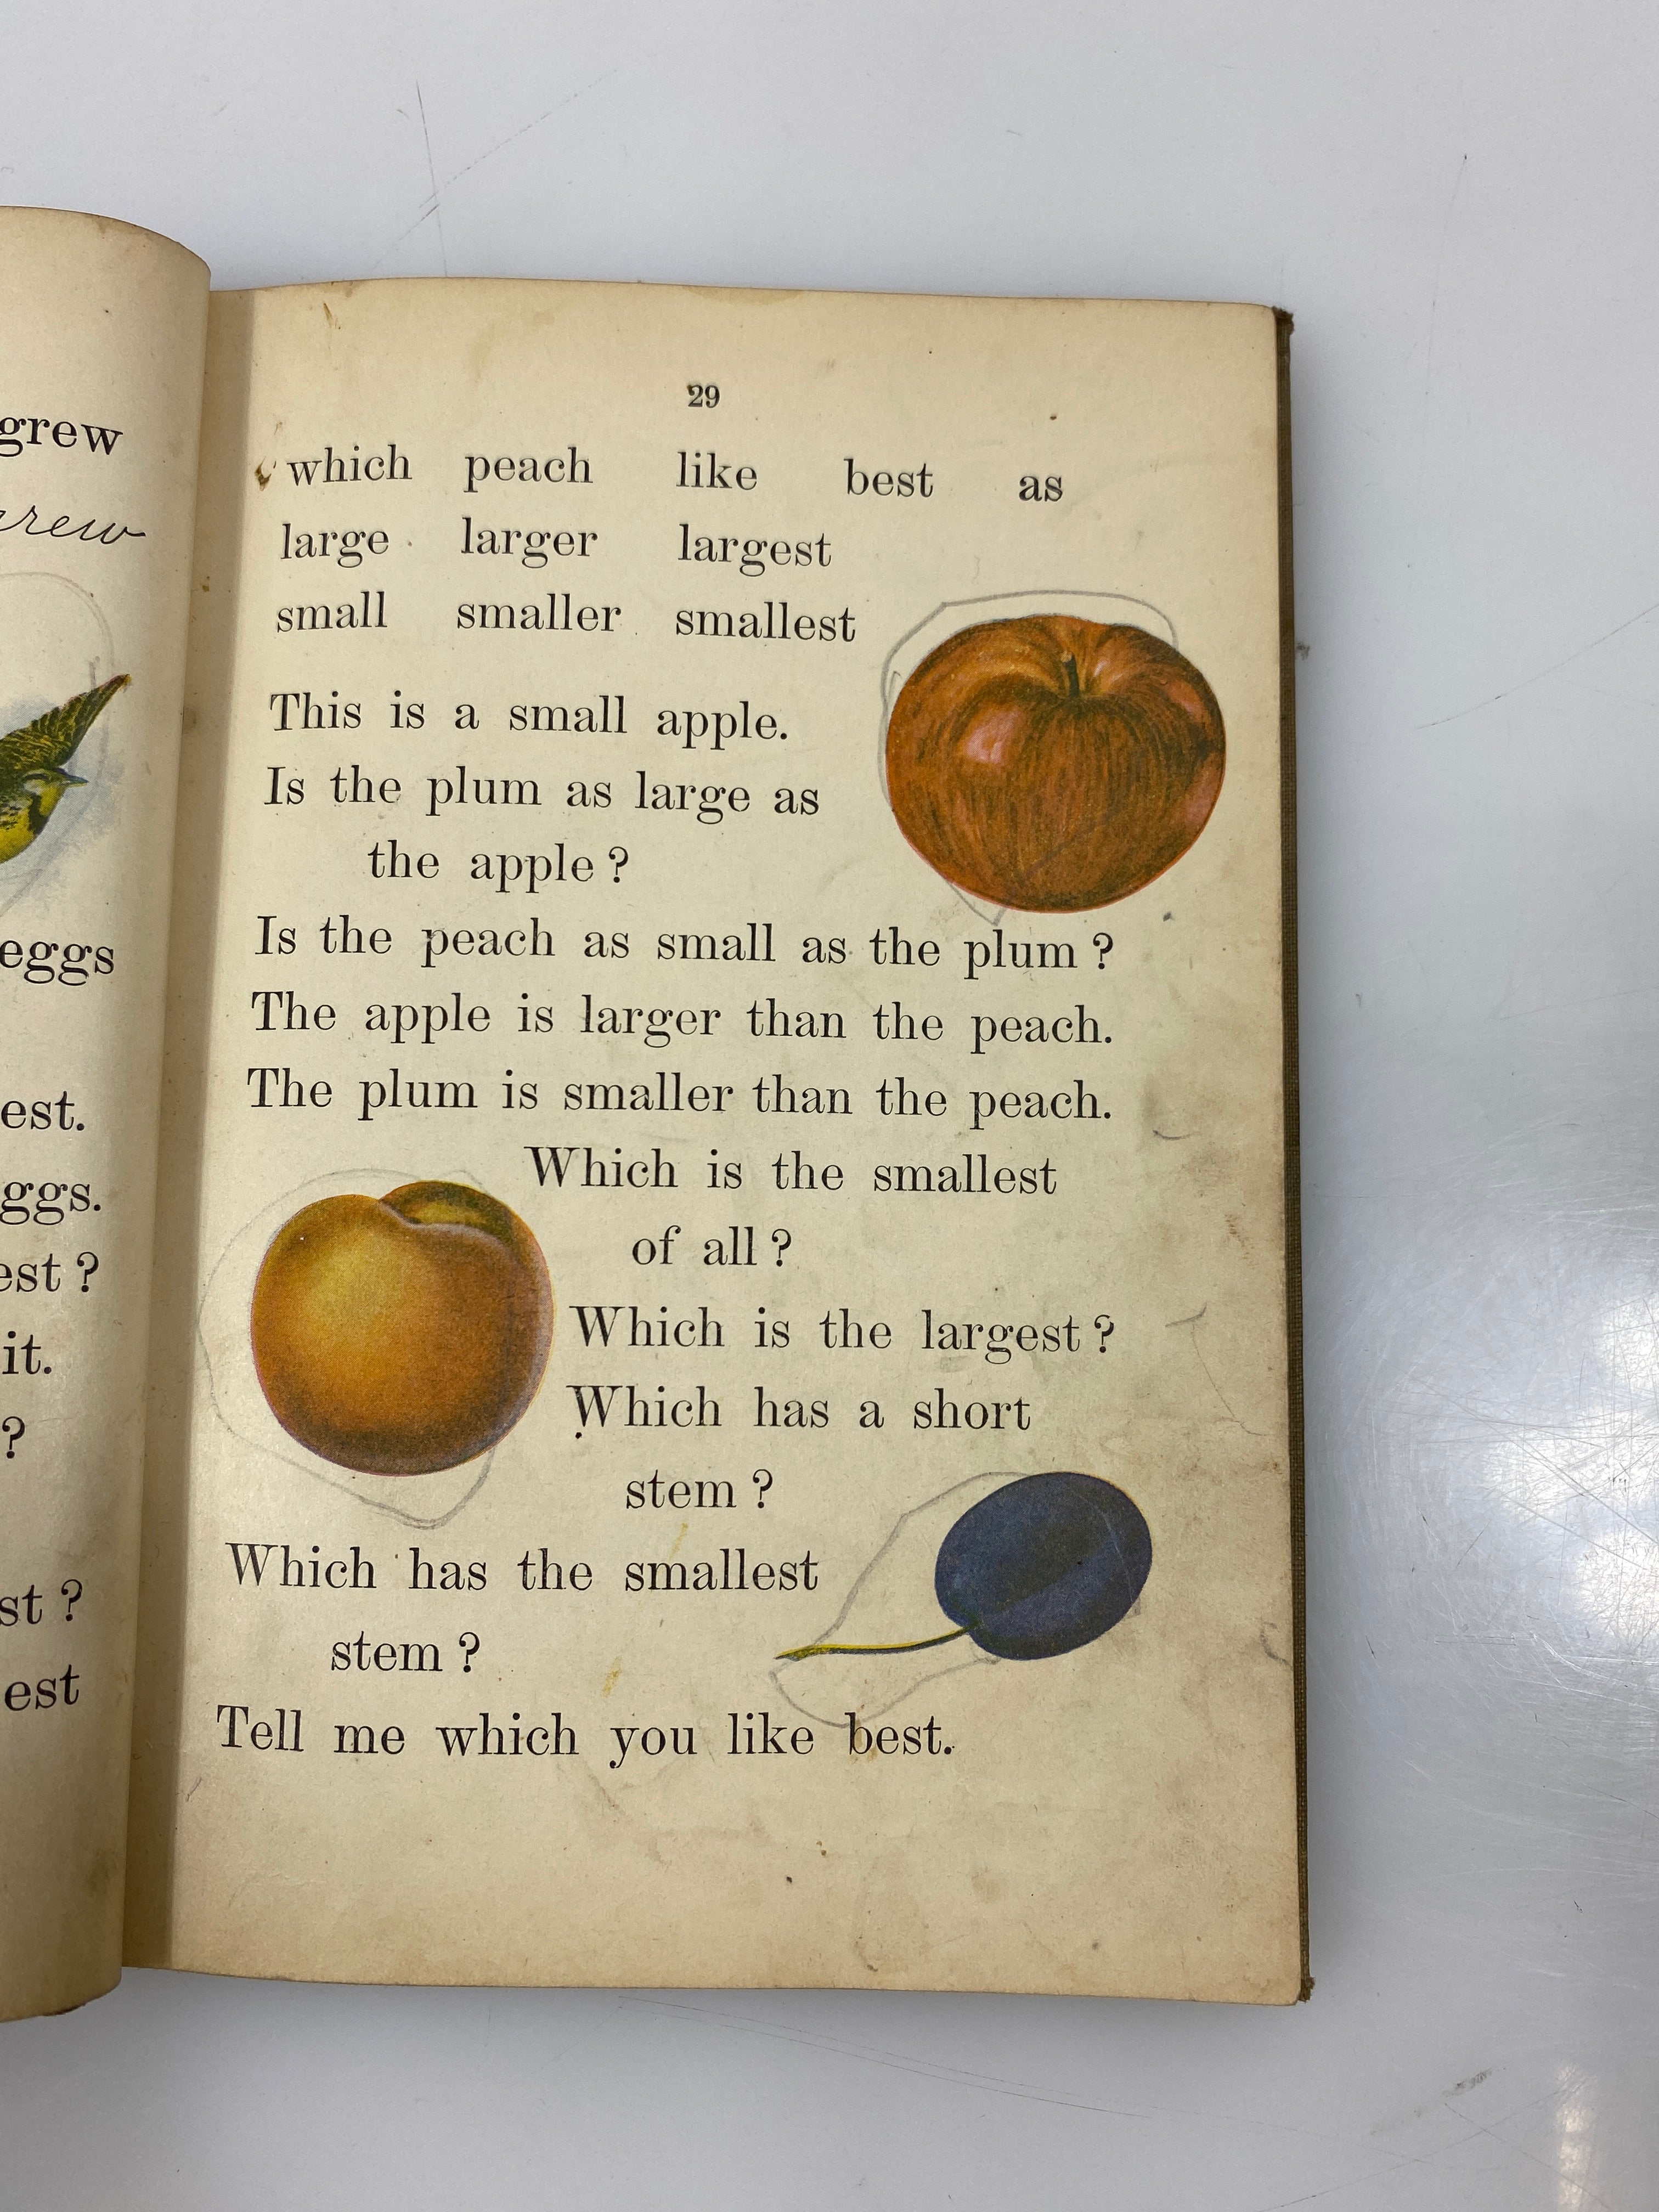 grew
grew
eggs
est.
ggs.
est ?
it.
?
st ?
est
29
which peach like best as
large larger largest
small smaller smallest
This is a small apple.
Is the plum as large as
the apple ?
Is the peach as small as the plum ?
The apple is larger than the peach.
The plum is smaller than the peach.
Which is the smallest
of all ?
Which is the largest ?
Which has a short
stem ?
Which has the smallest
stem ?
Tell me which you like best.